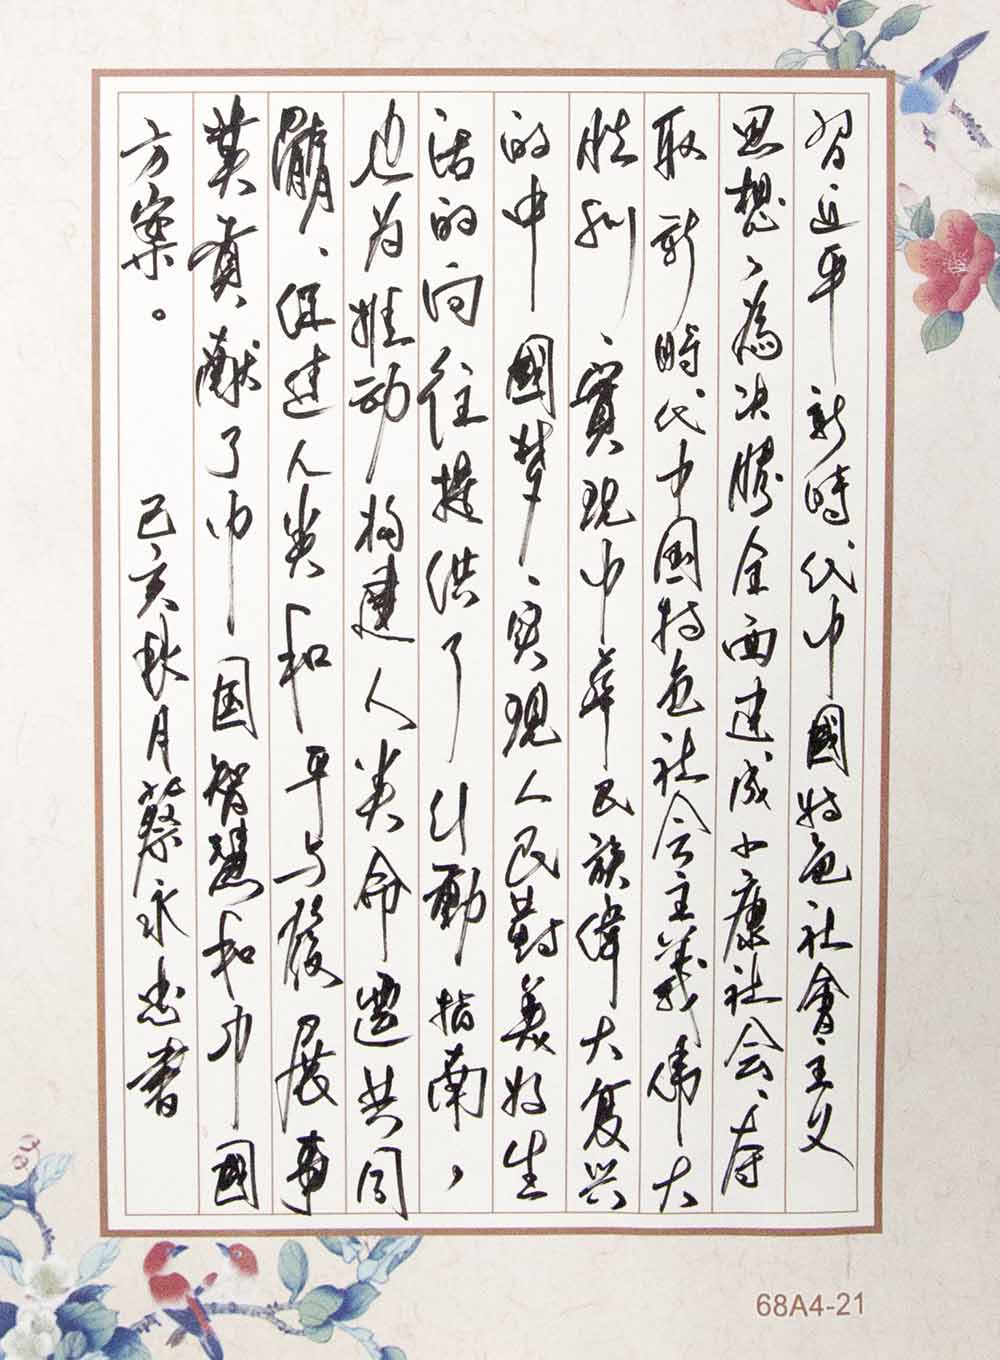 习近平新時代中國特色社會主义
思想、為决勝全面建成小康社会、夺
取新時代中国特色社会主義偉大
胜利、實现中华民族偉大复兴
的中國梦、实现人民對美好生
活的向往提供了行動指南，
也为推动构建人类命運共同
體、促进人类和平与發展事
業贡献了中国智慧和中國
方案。　己亥秋月蔡永忠書
68A4-21